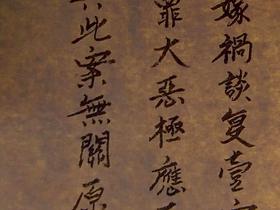 嫁禍談复壹
罪大恶極應
此案無關原